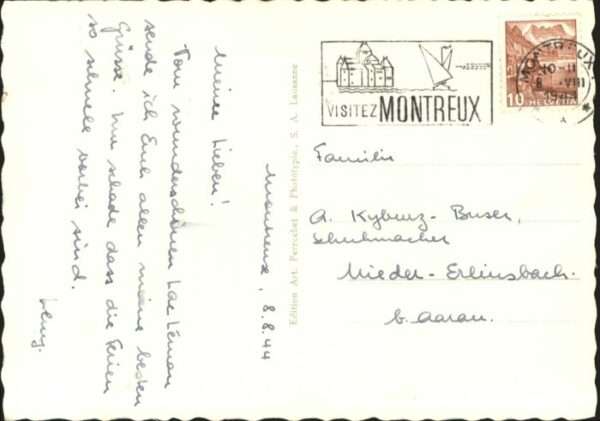 Montreux, 8.8.44
Meine Lieben!
Vom wunderschönen Lac Léman
sende ich Euch allen meine besten
Grüsse. Nur schade dass die Ferien
so schnell vorbei sind.
Leny.
Edition Art. Perrochet & Phototypie, S. A. Lausanne
VISITEZ MONTREUX
MONTREUX
10-11
8. VIII
10
HELVETIA
Familie
A. Kyburz-Buser,
Schuhmacher
Nieder-Erlinsbach.
b. Aarau.